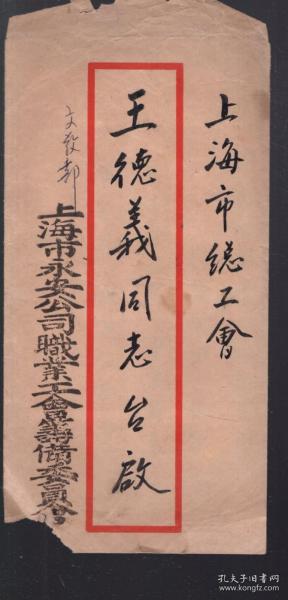 上海市總工會
王德義同志台啟
文教部
上海市永安公司職業工會籌備委員會
孔夫子旧书网